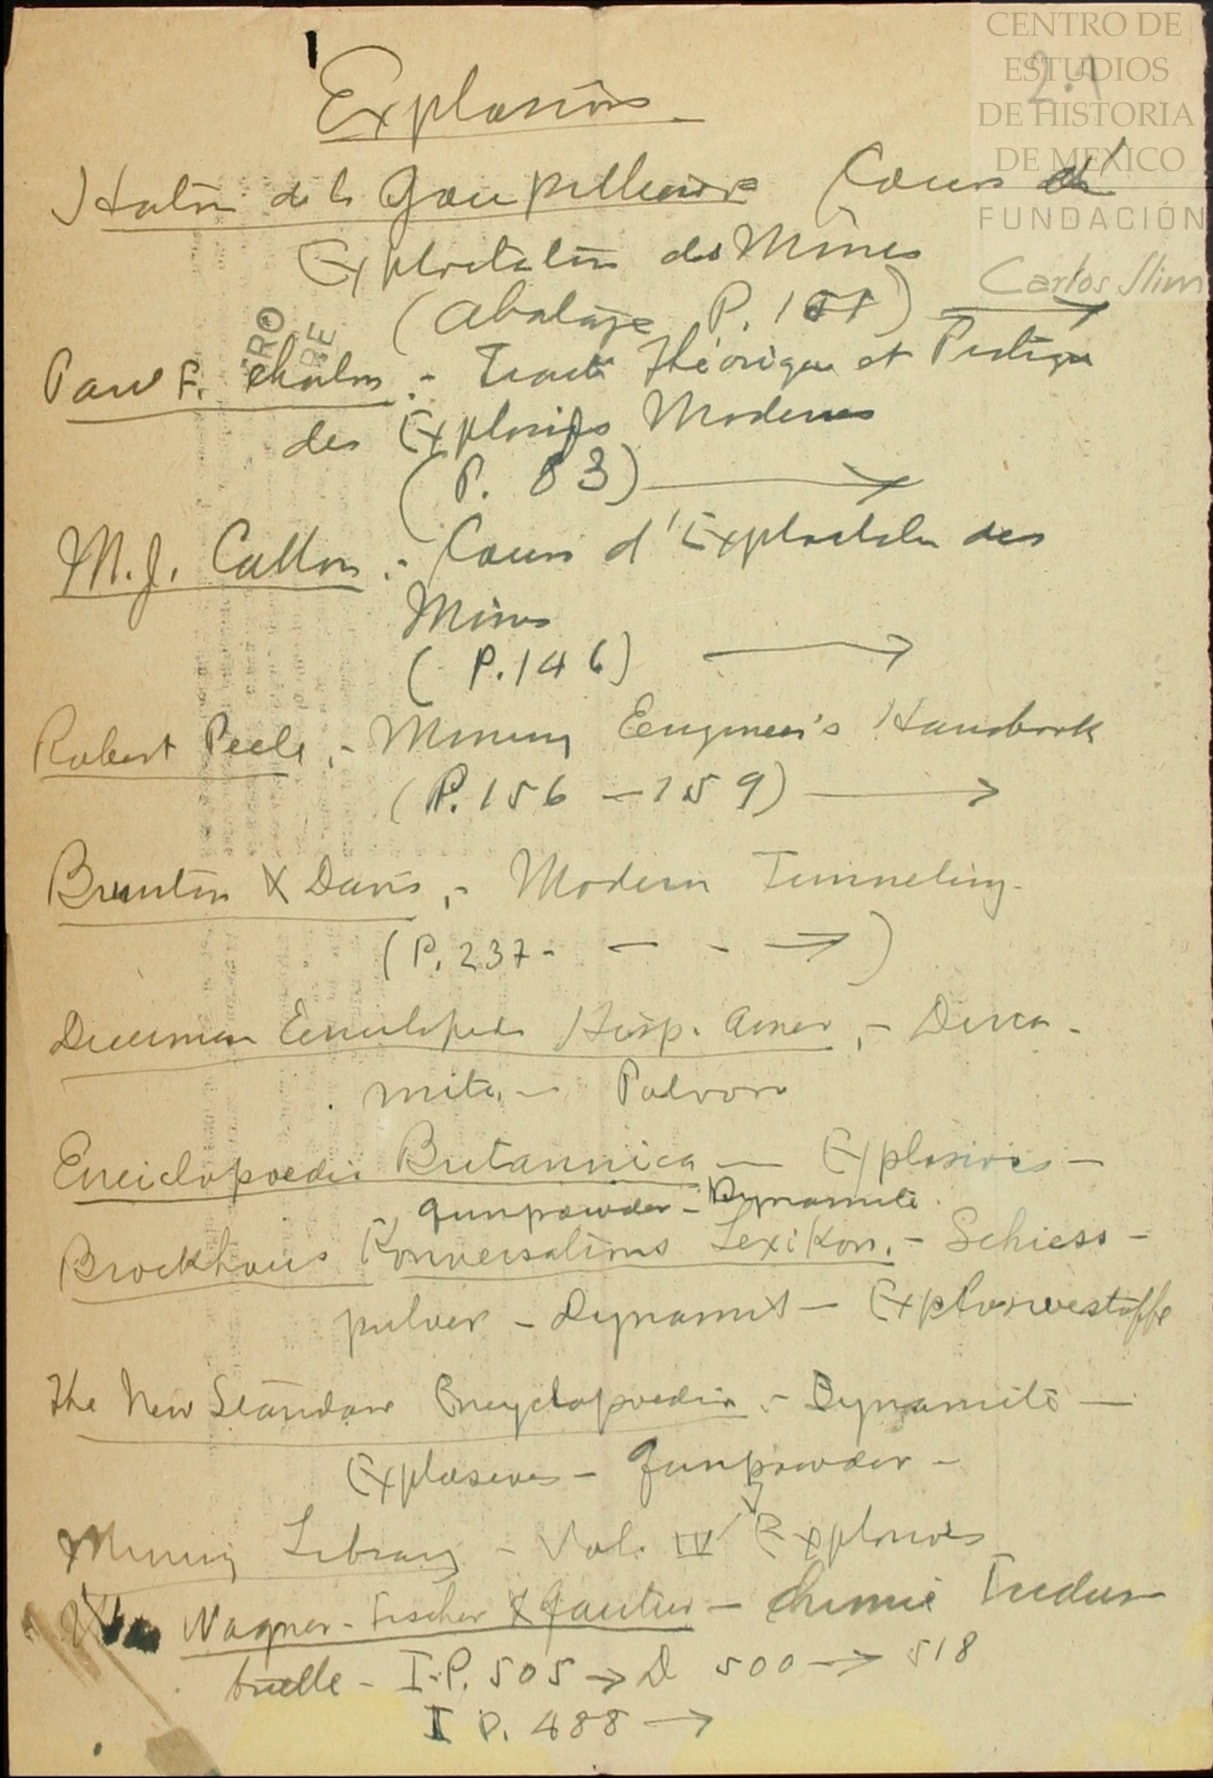 CENTRO DE
ESTUDIOS
DE HISTORIA
DE MEXICO
FUNDACIÓN
Carlos Slim
2.1
Explosivos
Haton de la Goupilliere Cours d'
Exploitation des Mines
(Abatage P. 151)
Paul F. Chalon .- Traité Théorique et Pratique
des Explosifs Modernes
(P. 83)
M. J. Callon .- Cours d'Exploitation des
Mines
(P. 146)
Robert Peele .- Mining Eengineer's Handbook
(P. 156 - 159)
Brunton & Davis .- Modern Tunneling.
(P. 237- - - →)
Hisp. Amer .- Dina-
mita - Polvora
Enciclopoedia Britannica - Explosives -
Gunpowder - Dynamite
Brockhaus Konversations Lexikon .- Schiess-
pulver - Dynamit - Explosivestoffe
The New Standard Encyclopoedia .- Dynamite -
Explosives - Gunpowder -
Mining Library - Vol. IV Explosives
Wagner - Fischer & Gautier - Chimie Indus-
trielle - I-P. 505 → D 500 → 518
I P. 488 →